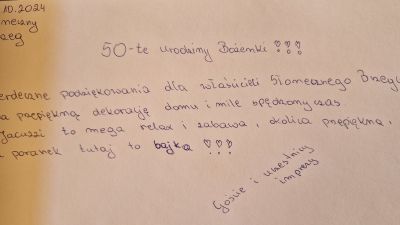 10.2024
neczny
zeg
50-te urodziny Bożenki ♡♡♡
erdeczne podziękowania dla właścicieli Słonecznego Brzegu
a przepiękną dekorację domu i mile spędzony czas.
Jacuzzi to mega relax i zabawa, okolica przepiękna,
a poranek tutaj to bajka ♡♡♡
Goście i uczestnicy
imprezy